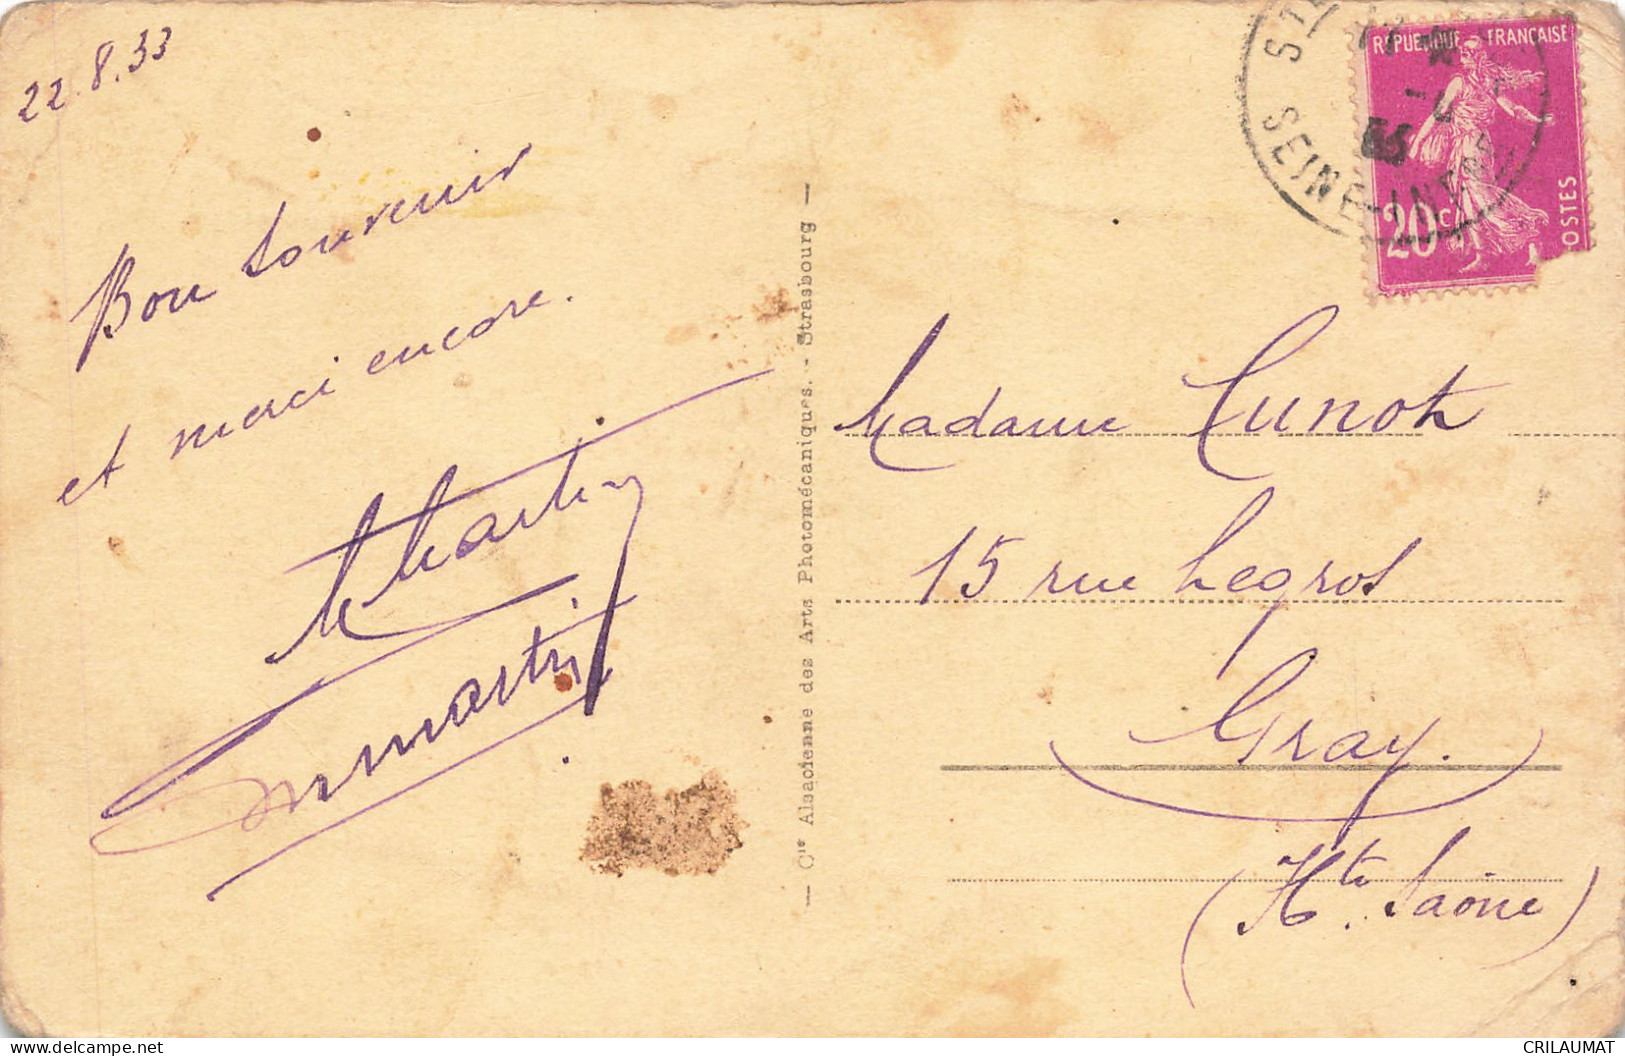 22.8.33
Bon souvenir
et merci encore.
Martin
Martin
— Cie Alsacienne des Arts Photomécaniques. - Strasbourg —
SEINE-INFRE
REPUBLIQUE FRANÇAISE
20c
POSTES
Madame Cunot
15 rue Legros
Gray.
(Hte Saône)
CRILAUMAT